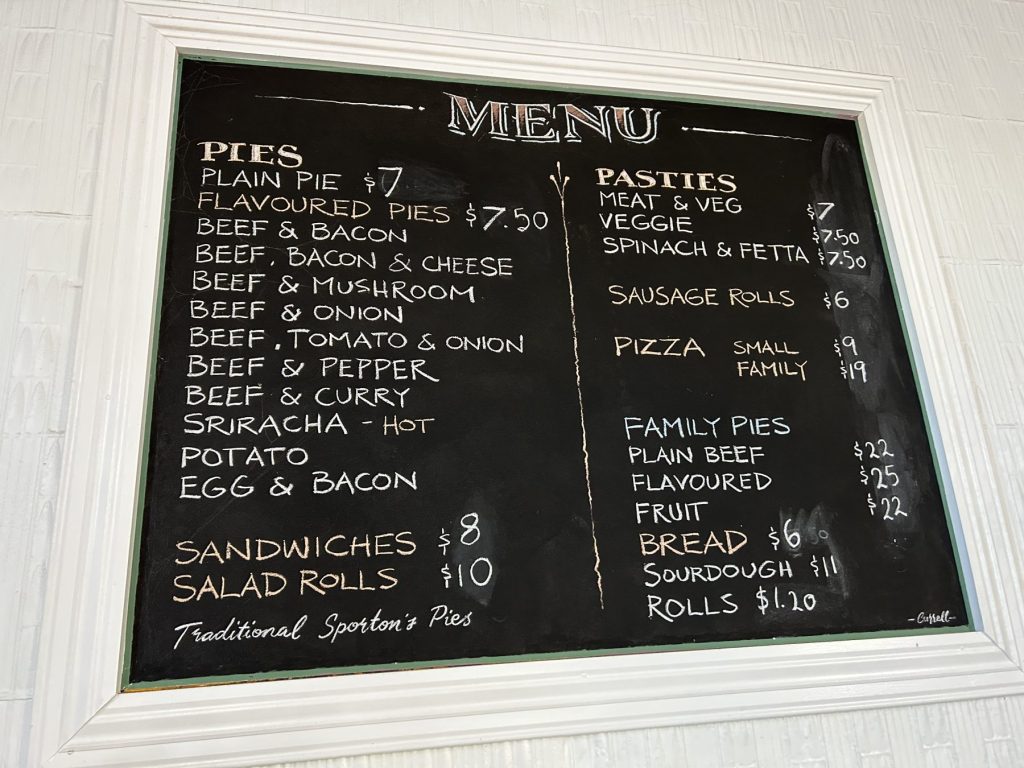 MENU
PIES
PLAIN PIE $7
FLAVOURED PIES $7.50
BEEF & BACON
BEEF, BACON & CHEESE
BEEF & MUSHROOM
BEEF & ONION
BEEF, TOMATO & ONION
BEEF & PEPPER
BEEF & CURRY
SRIRACHA - HOT
POTATO
EGG & BACON
SANDWICHES $8
SALAD ROLLS $10
Traditional Sporton's Pies
PASTIES
MEAT & VEG $7
VEGGIE $7.50
SPINACH & FETTA $7.50
SAUSAGE ROLLS $6
PIZZA SMALL $9
FAMILY $19
FAMILY PIES
PLAIN BEEF $22
FLAVOURED $25
FRUIT $22
BREAD $6
SOURDOUGH $11
ROLLS $1.20